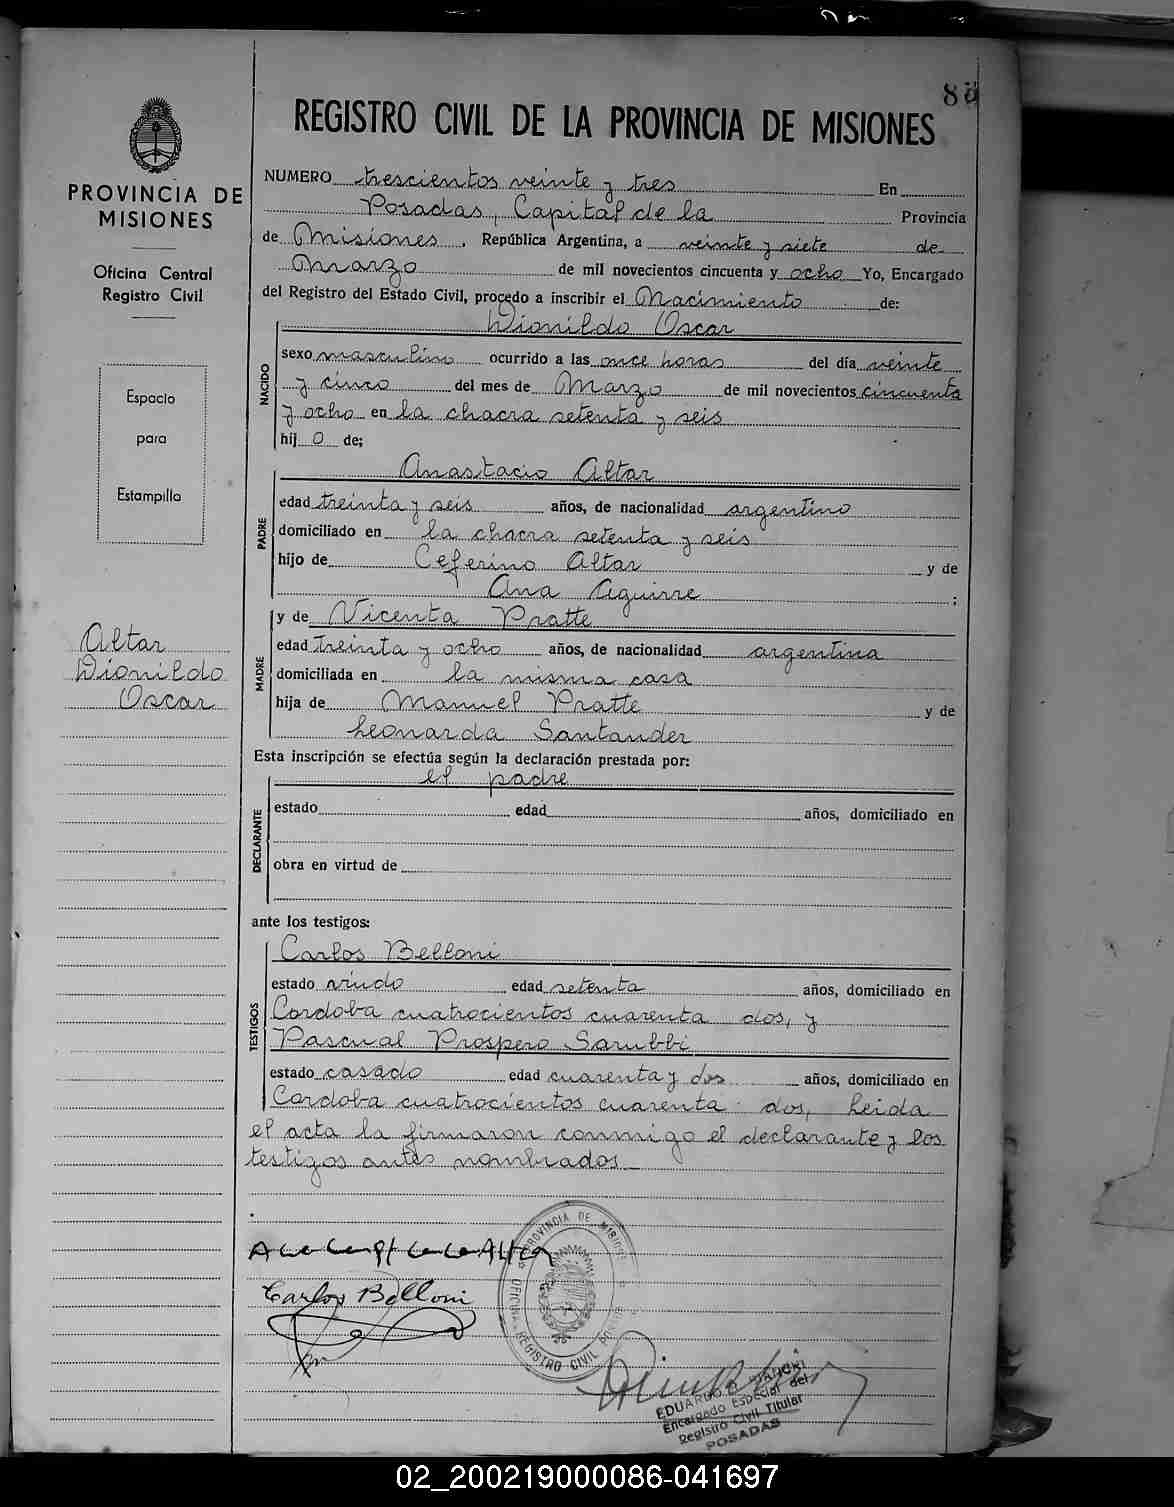 REGISTRO CIVIL DE LA PROVINCIA DE MISIONES
PROVINCIA DE
MISIONES
Oficina Central
Registro Civil
Espacio
para
Estampilla
Altar
Dionildo
Oscar
NUMERO trescientos veinte y tres En
Posadas, Capital de la Provincia
de Misiones, República Argentina, a veinte y siete de
Marzo de mil novecientos cincuenta y ocho Yo, Encargado
del Registro del Estado Civil, procedo a inscribir el Nacimiento de:
Dionildo Oscar
NACIDO
sexo masculino ocurrido a las once horas del día veinte
y cinco del mes de Marzo de mil novecientos cincuenta
y ocho en la chacra setenta y seis
hij o de;
Anastacio Altar
PADRE
edad treinta y seis años, de nacionalidad argentino
domiciliado en la chacra setenta y seis
hijo de Ceferino Altar y de
Ana Aguirre ;
y de Vicenta Pratte
MADRE
edad treinta y ocho años, de nacionalidad argentina
domiciliada en la misma casa
hija de Manuel Pratte y de
Leonarda Santander
Esta inscripción se efectúa según la declaración prestada por:
el padre
DECLARANTE
estado edad años, domiciliado en
obra en virtud de
ante los testigos:
Carlos Belloni
TESTIGOS
estado viudo edad setenta años, domiciliado en
Cordoba cuatrocientos cuarenta dos, y
Pascual Prospero Sarubbi
estado casado edad cuarenta y dos años, domiciliado en
Cordoba cuatrocientos cuarenta dos, Leida
el acta la firmaron conmigo el declarante y los
testigos antes nombrados
Carlos Belloni
PROVINCIA DE MISIONES
REGISTRO CIVIL
EDUARDO
Encargado Especial del
Registro Civil Titular
POSADAS
02_200219000086-041697